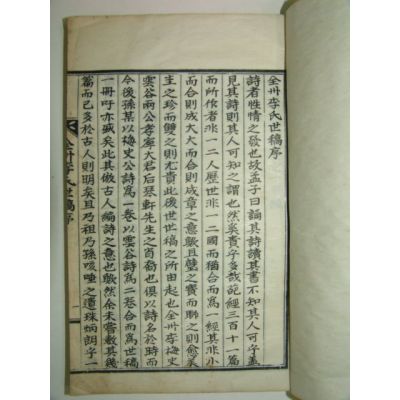 全州李氏世稿序
詩者性情之發也故孟子曰誦其詩讀其書不知其人可乎盖
見其詩則其人可知之謂也然奚貴乎多哉葩經三百十一篇
而所作者非一二人歷世非一二國而猶合而爲一經其非小
而合則成大而大歟其非合則成章之意歟且璧之寶而聯之則愈美
主之珍而雙之則右貴此後世世稿之所由起也全州李梅史
雲谷兩公孝寧大君后琴軒先生之百裔也俱以詩名於時而
今後孫某以梅史公詩爲一卷以雲谷詩爲二卷合而爲世稿
一冊吁亦盛矣此其倣古人編詩之意也歟然余未嘗敷其幾
篇而已多於古人則明矣且乃祖乃孫咳唾之遺珠炳朗字一
全州李氏世稿序
一